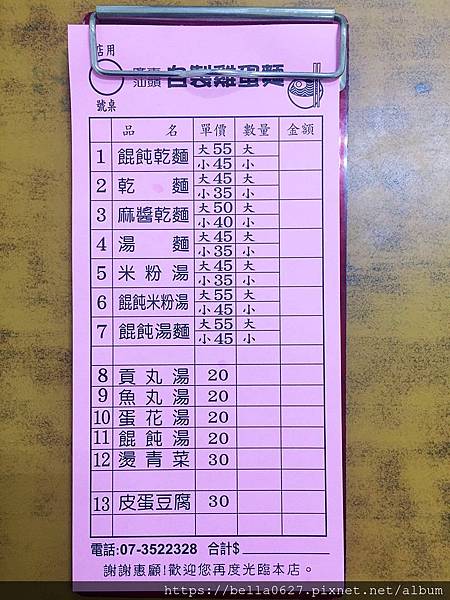 店用
號桌
廣東
汕頭
自製雞蛋麵
品 名 單價 數量 金額
1 餛飩乾麵 大55 大
小45 小
2 乾 麵 大45 大
小35 小
3 麻醬乾麵 大50 大
小40 小
4 湯 麵 大45 大
小35 小
5 米粉湯 大45 大
小35 小
6 餛飩米粉湯 大55 大
小45 小
7 餛飩湯麵 大55 大
小45 小
8 貢丸湯 20
9 魚丸湯 20
10 蛋花湯 20
11 餛飩湯 20
12 燙青菜 30
13 皮蛋豆腐 30
電話:07-3522328 合計$
謝謝惠顧!歡迎您再度光臨本店。
https://bella0627.pixnet.net/album